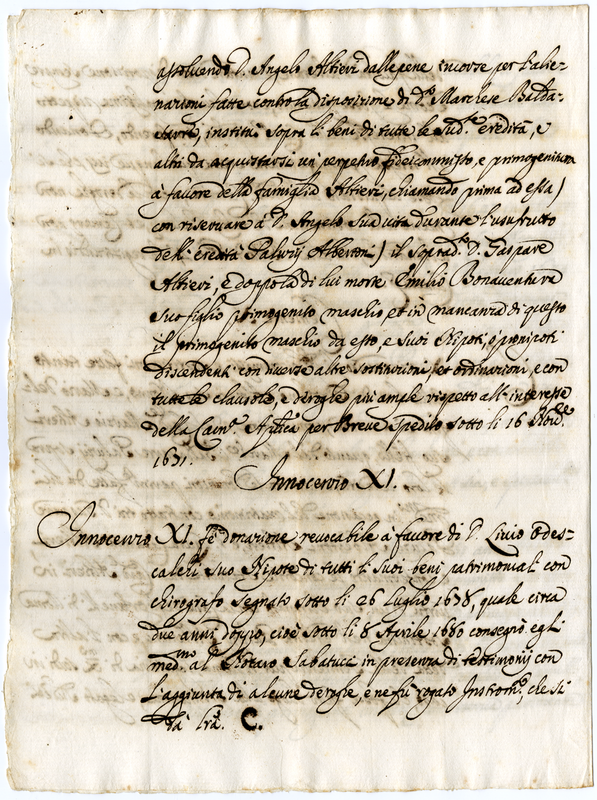 assolvendo D. Angelo Altieri dalle pene incorse per l'alie-
nazioni fatte contro la disposizione di d.º Marchese Balda-
ssarre, instituì sopra li beni di tutte le Sud.e eredità, e
altri da acquistarsi un perpetuo fideicommisso, e primogenitura
à favore della famiglia Altieri, chiamando prima ad essa)
con riservare à D. Angelo Sua vita durante l'usufrutto
dell'eredità Paluzij Albertoni) il soprad.º D. Gaspare
Altieri, e doppo la di lui morte Emilio Bonaventura
suo figlio primogenito maschio, et in mancanza di questo
il primogenito maschio da esso, e suoi Nipoti, ò pronipoti
discendenti con diverse altre sostituzioni, et ordinazioni, e con
tutte le clausole, e deroghe più ample rispetto all'interesse
della Cam.ª Ap.lica per Breve Spedito sotto li 16 Nov.e
1671.
Innocenzio XI.
Innocenzio XI. fè donazione revocabile à favore di D. Livio Odes-
calchi suo Nipote di tutti li Suoi beni patrimoniali con
chirografo segnato sotto li 26 Luglio 1678, quale circa
due anni doppo, cioè sotto li 8 Aprile 1680 consegnò egli
med.mo al Notaro Sabatucci in presenza di testimonij con
l'aggiunta di alcune deroghe, e ne fù rogato Instrom.º, che si
dà l'ra. C.